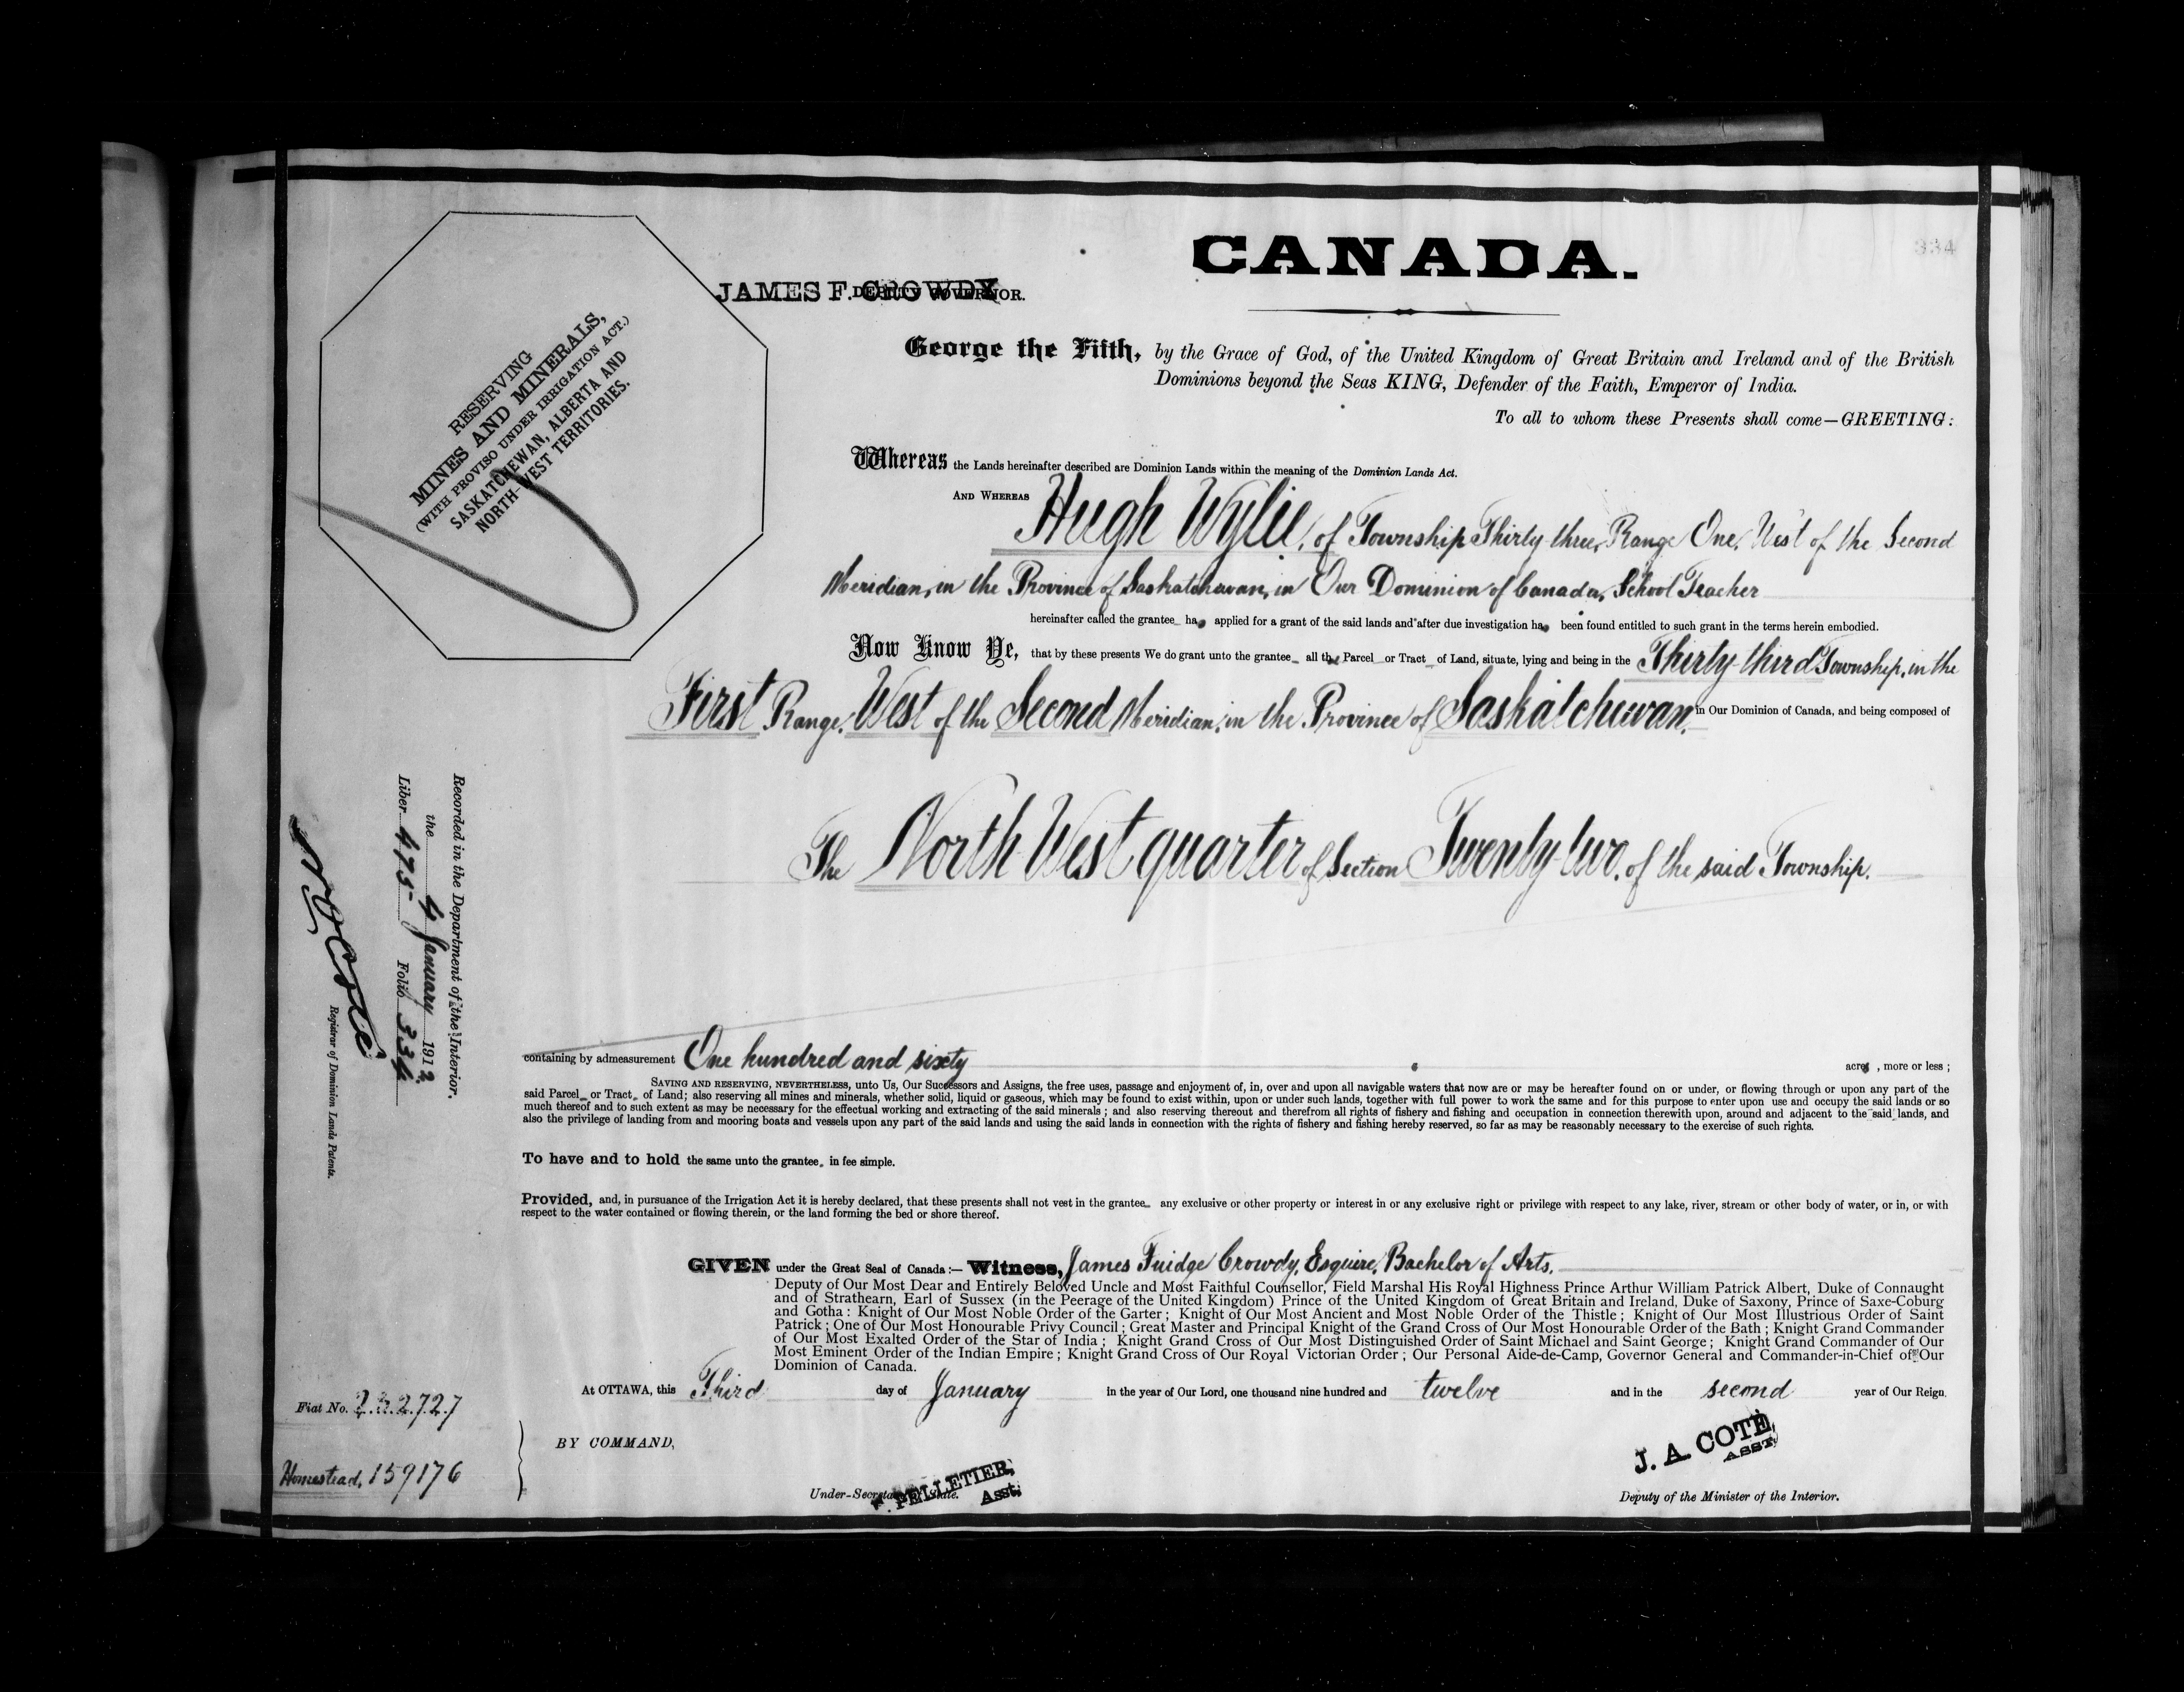 334
CANADA.
JAMES F. CROWDY
DEPUTY GOVERNOR.
RESERVING
MINES AND MINERALS,
(WITH PROVISO UNDER IRRIGATION ACT.)
SASKATCHEWAN, ALBERTA AND
NORTH-WEST TERRITORIES.
George the Fifth, by the Grace of God, of the United Kingdom of Great Britain and Ireland and of the British
Dominions beyond the Seas KING, Defender of the Faith, Emperor of India.
To all to whom these Presents shall come—GREETING:
Whereas the Lands hereinafter described are Dominion Lands within the meaning of the Dominion Lands Act.
AND WHEREAS Hugh Wylie, of Township Thirty-three, Range One, West of the Second
Meridian, in the Province of Saskatchewan, in Our Dominion of Canada, School Teacher
hereinafter called the grantee ha applied for a grant of the said lands and after due investigation ha been found entitled to such grant in the terms herein embodied.
Now Know Ye, that by these presents We do grant unto the grantee all th Parcel or Tract of Land, situate, lying and being in the Thirty-third Township, in the
First Range, West of the Second Meridian, in the Province of Saskatchewan, in Our Dominion of Canada, and being composed of
The North West quarter of Section Twenty-two, of the said Township.
containing by admeasurement One hundred and sixty acres, more or less;
SAVING AND RESERVING, NEVERTHELESS, unto Us, Our Successors and Assigns, the free uses, passage and enjoyment of, in, over and upon all navigable waters that now are or may be hereafter found on or under, or flowing through or upon any part of the
said Parcel or Tract of Land; also reserving all mines and minerals, whether solid, liquid or gaseous, which may be found to exist within, upon or under such lands, together with full power to work the same and for this purpose to enter upon use and occupy the said lands or so
much thereof and to such extent as may be necessary for the effectual working and extracting of the said minerals; and also reserving thereout and therefrom all rights of fishery and fishing and occupation in connection therewith upon, around and adjacent to the said lands, and
also the privilege of landing from and mooring boats and vessels upon any part of the said lands and using the said lands in connection with the rights of fishery and fishing hereby reserved, so far as may be reasonably necessary to the exercise of such rights.
To have and to hold the same unto the grantee in fee simple.
Provided, and, in pursuance of the Irrigation Act it is hereby declared, that these presents shall not vest in the grantee any exclusive or other property or interest in or any exclusive right or privilege with respect to any lake, river, stream or other body of water, or in, or with
respect to the water contained or flowing therein, or the land forming the bed or shore thereof.
GIVEN under the Great Seal of Canada:— Witness, James Fuidge Crowdy, Esquire, Bachelor of Arts.
Deputy of Our Most Dear and Entirely Beloved Uncle and Most Faithful Counsellor, Field Marshal His Royal Highness Prince Arthur William Patrick Albert, Duke of Connaught
and of Strathearn, Earl of Sussex (in the Peerage of the United Kingdom) Prince of the United Kingdom of Great Britain and Ireland, Duke of Saxony, Prince of Saxe-Coburg
and Gotha: Knight of Our Most Noble Order of the Garter; Knight of Our Most Ancient and Most Noble Order of the Thistle; Knight of Our Most Illustrious Order of Saint
Patrick; One of Our Most Honourable Privy Council; Great Master and Principal Knight of the Grand Cross of Our Most Honourable Order of the Bath; Knight Grand Commander
of Our Most Exalted Order of the Star of India; Knight Grand Cross of Our Most Distinguished Order of Saint Michael and Saint George; Knight Grand Commander of Our
Most Eminent Order of the Indian Empire; Knight Grand Cross of Our Royal Victorian Order; Our Personal Aide-de-Camp, Governor General and Commander-in-Chief of Our
Dominion of Canada.
At OTTAWA, this Third day of January in the year of Our Lord, one thousand nine hundred and twelve and in the second year of Our Reign.
BY COMMAND,
F. PELLETIER,
Asst.
Under-Secretary of State.
J. A. COTE,
ASST.
Deputy of the Minister of the Interior.
Recorded in the Department of the Interior.
the 4 January 1912
Liber 475 Folio 334
N. O. Coté
Registrar of Dominion Lands Patents.
Fiat No. 232727
Homestead, 159176